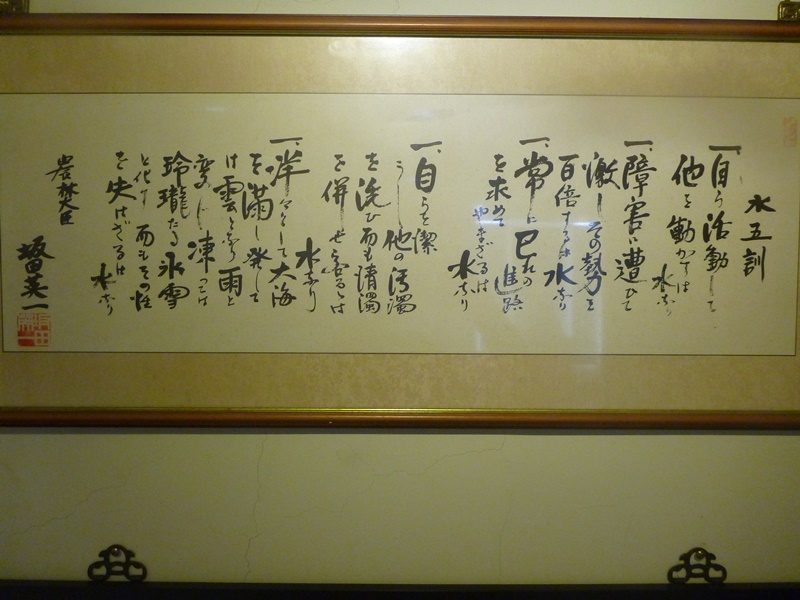 水五訓
一、自ら活動して
他を動かすは
水なり
一、障害に遭ひて
激しその勢を
百倍するは水なり
一、常に己れの進路
を求めて
やまざるは
水なり
一、自らを潔
うし他の汚濁
を洗ひ而も清濁
を併せ容るるは
水なり
一、洋々として大海
を満し発して
は雲となり雨と
変じ凍っては
玲瓏たる氷雪
と化す而もその性
を失はざるは
水なり
農林大臣
坂田英一